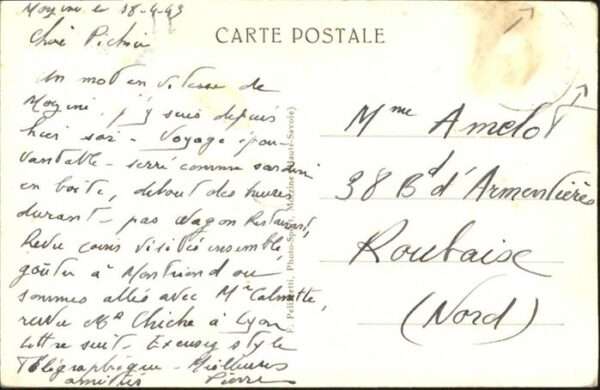 Morzine le 18-4-43
CARTE POSTALE
Un mot en vitesse de
Morzine. j'y suis depuis
hier soir - Voyage épou-
vantable - serré comme sardine
en boîte, debout des heures
durant - pas Wagon Restaurant,
Revu coins visités ensemble,
goûter à Montriond ou
sommes allés avec Mr Calmette,
revu Chiche à Lyon
lettre suit - Excusez style
Télégraphique - Meilleures
amitiés Pierre
F. Pellissetti, Photo-Sport, Morzine (Haute-Savoie)
Mme Amelot
38 Bd d'Armentières
Roubaix
(Nord)